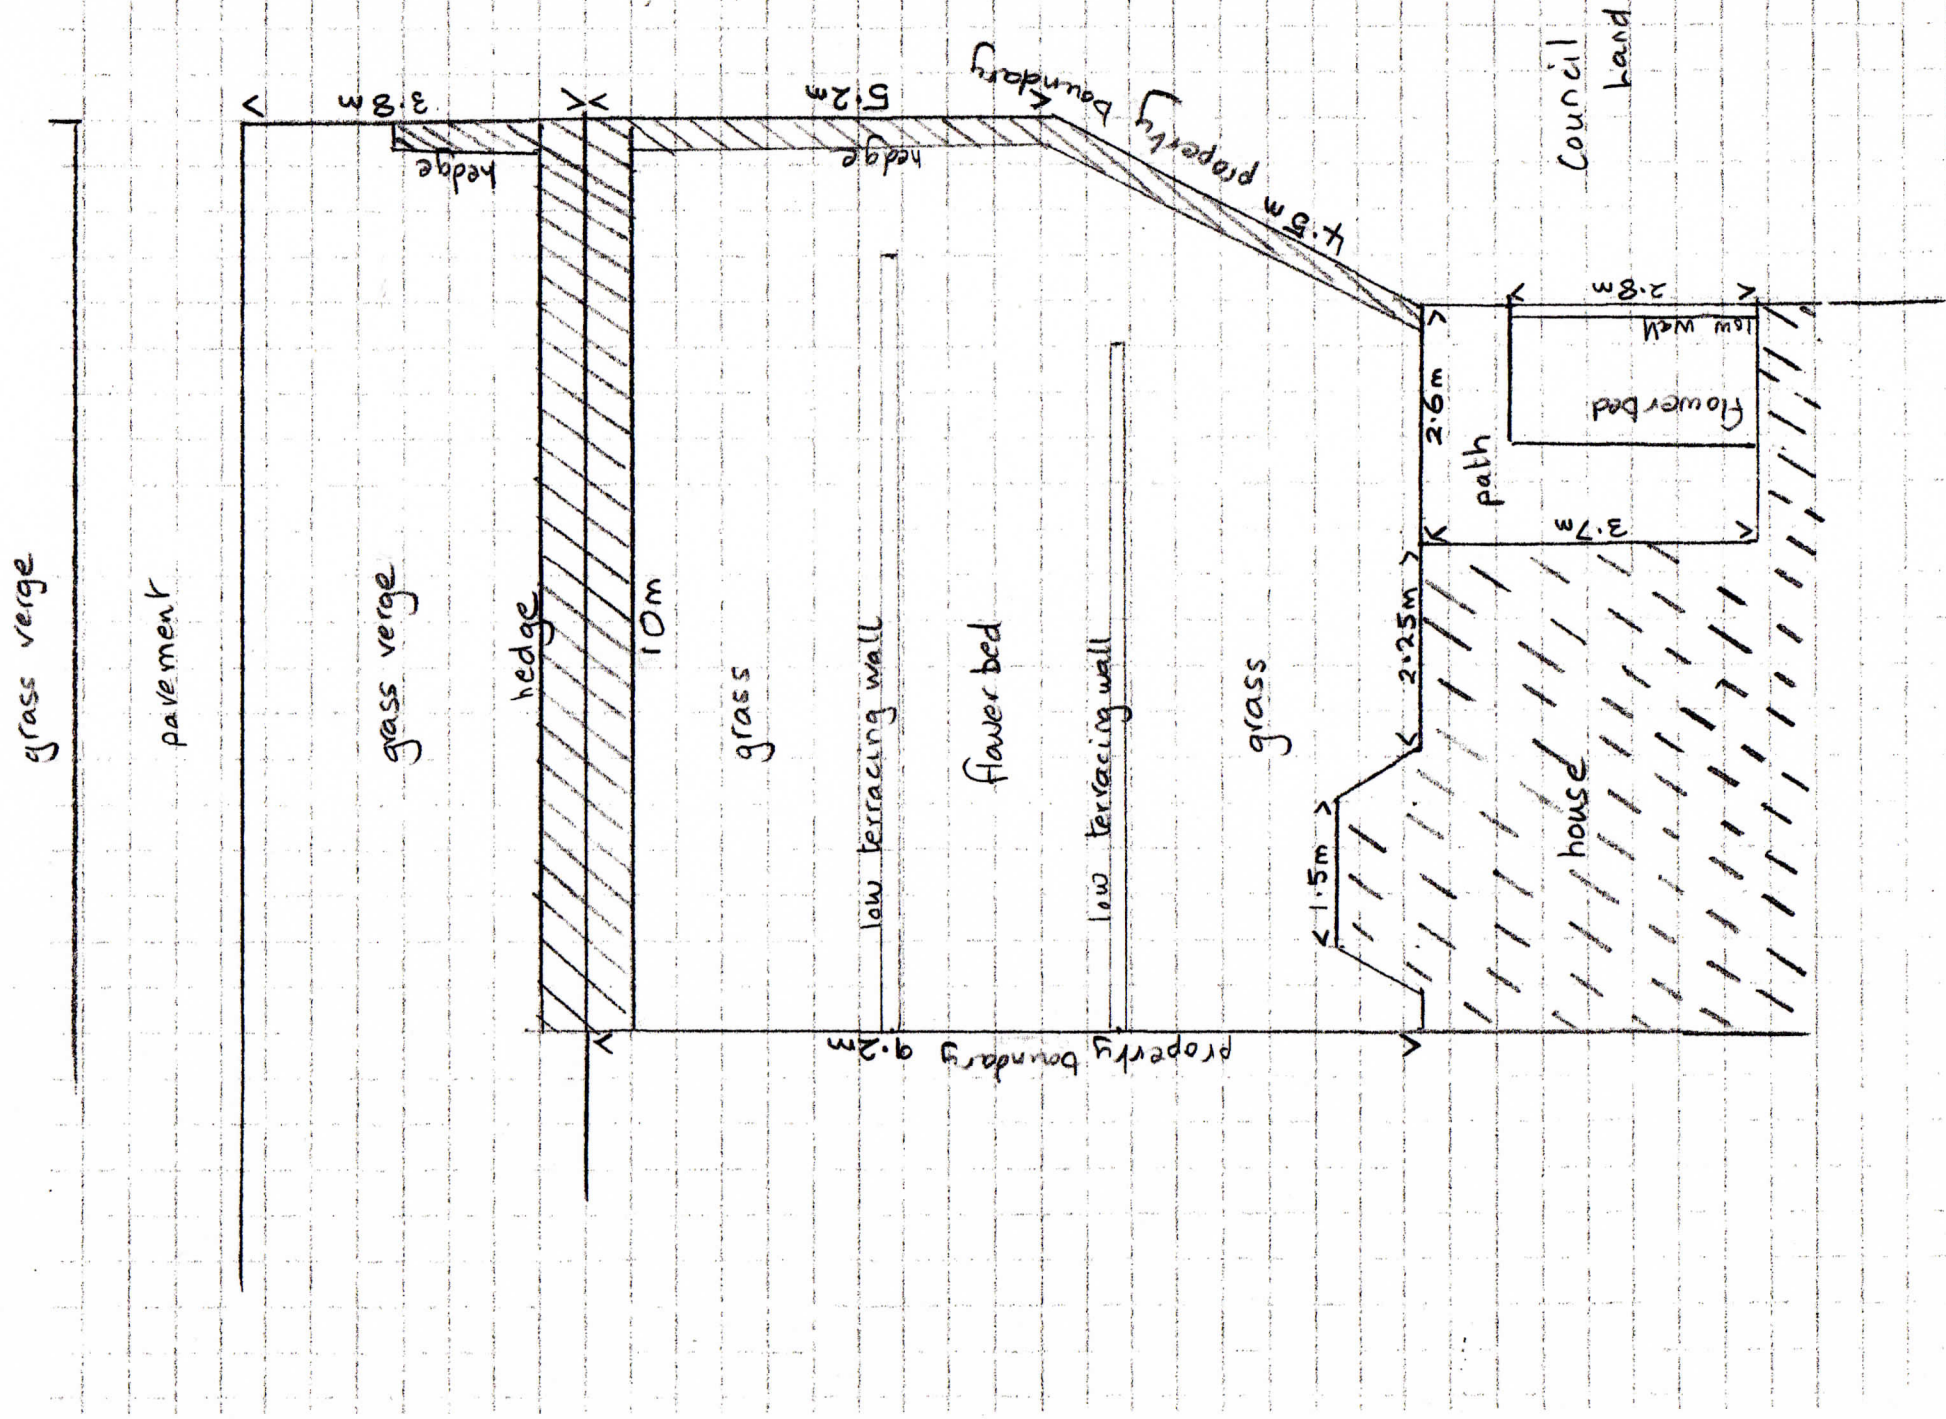 grass verge
pavement
grass verge
3.8m
hedge
hedge
10m
5.2m
hedge
grass
low terracing wall
flower bed
low terracing wall
grass
property boundary
4.5m
property boundary 9.2m
1.5m
2.25m
2.6m
path
3.7m
2.8m
low wall
flower bed
house
Council
land